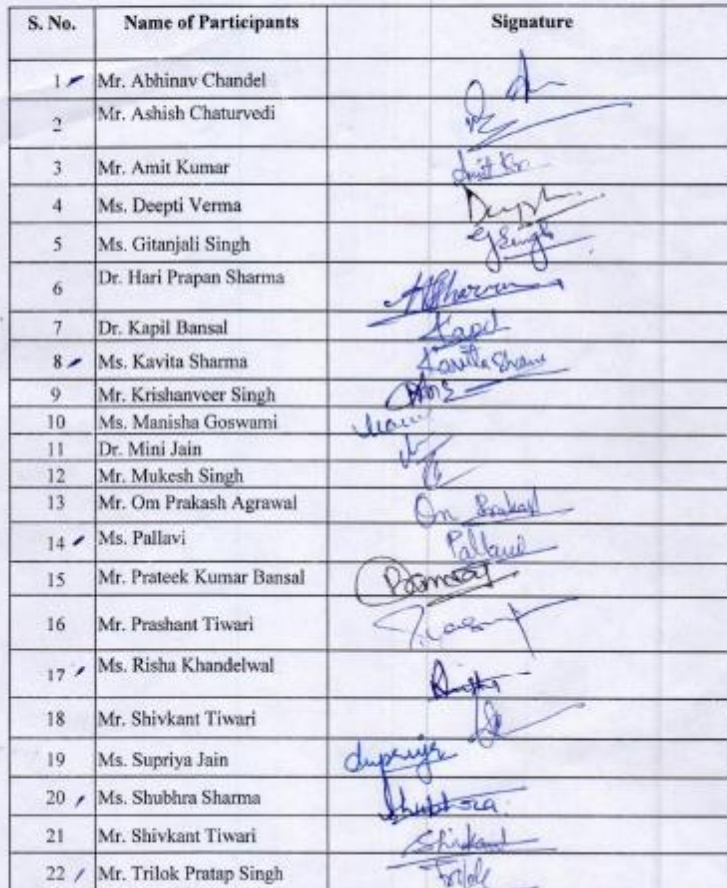 S. No. Name of Participants Signature
1 Mr. Abhinav Chandel
2 Mr. Ashish Chaturvedi
3 Mr. Amit Kumar Amit Kr.
4 Ms. Deepti Verma
5 Ms. Gitanjali Singh GSingh
6 Dr. Hari Prapan Sharma HSharma
7 Dr. Kapil Bansal Kapil
8 Ms. Kavita Sharma Kavita Sharma
9 Mr. Krishanveer Singh
10 Ms. Manisha Goswami
11 Dr. Mini Jain
12 Mr. Mukesh Singh
13 Mr. Om Prakash Agrawal Om Prakash
14 Ms. Pallavi Pallavi
15 Mr. Prateek Kumar Bansal
16 Mr. Prashant Tiwari
17 Ms. Risha Khandelwal
18 Mr. Shivkant Tiwari
19 Ms. Supriya Jain Supriya
20 Ms. Shubhra Sharma Shubhra
21 Mr. Shivkant Tiwari Shivkant
22 Mr. Trilok Pratap Singh Trilok